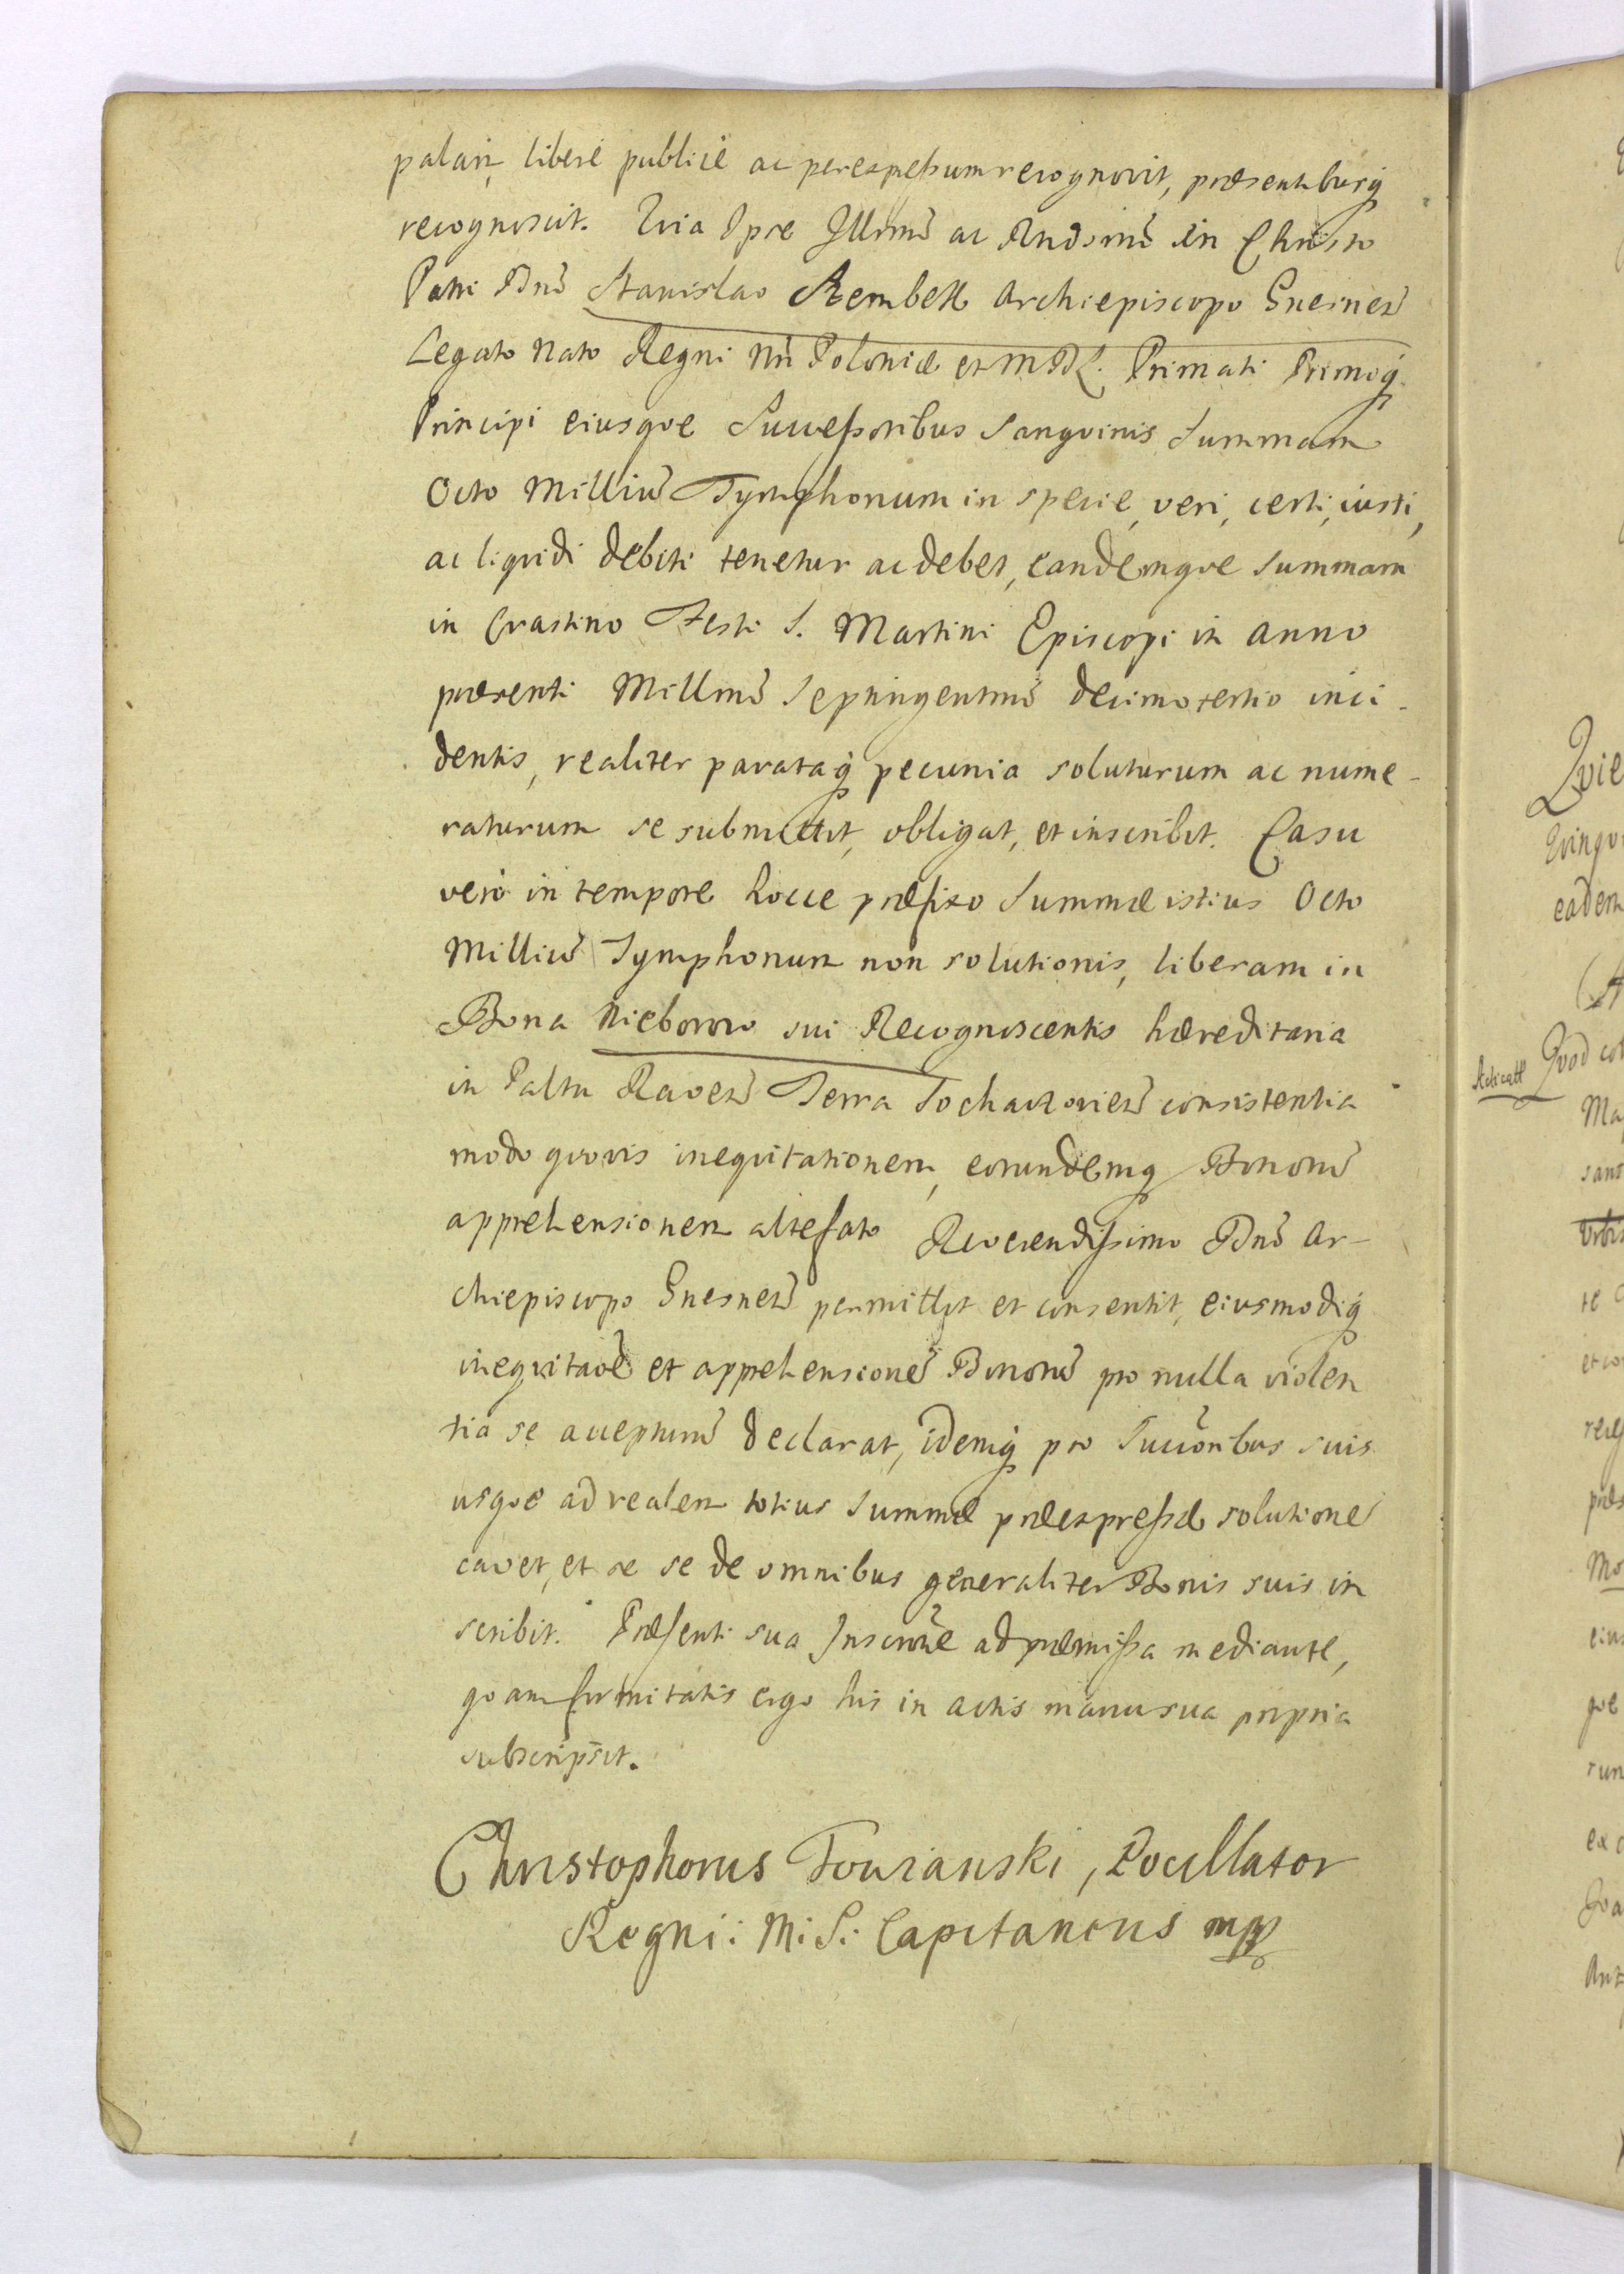 palam, liberè publicè ac perexpressum recognovit, præsentibusq́
recognoscit. Quia Ipse Illmo ac Rndsmo in Christo
Patri Dno Stanislao Szembek Archiepiscopo Gnesnen
Legato Nato Regni nri Poloniæ et M D L. Primati Primoq́
Principi eiusqve Successoribus Sangvinis Summam
Octo Milliũ Tymphonum in specie, veri, certi, iusti,
ac liqvidi debiti tenetur ac debet, eandemqve Summam
in Crastino Festi S. Martini Episcopi in Anno
præsenti Millmo Septingentmo decimo tertio inci-
dentis, realiter parataq́ pecunia soluturum ac nume-
raturum se submittit, obligat, et inscribit. Casu
verò in tempore hocce præfixo Summæ istius Octo
Milliũ Tymphonum non solutionis, liberam in
Bona Nieborow sui Recognoscentis hæreditaria
in Paltu Raven Terra Sochaczovien consistentia
modo qvovis ineqvitationem, eorundemq́ Bonorũ
apprehensionem altefato Reverendissimo Dno Ar-
chiepiscopo Gnesnen permittit et consentit, eiusmodiq́
ineqvitaoẽ et apprehensionẽ Bonorũ pro nulla violen
tia se accepturũ declarat, idemq́ pro Succoribus suis
usqve ad realem totius Summæ præexpressæ solutionẽ
cavet, et se se de omnibus generaliter Bonis suis in
scribit. Præsenti sua Inscrone ad præmissa mediante,
qvam firmitatis ergo his in actis manu sua propria
subscripsit.
Christophorus Towianski, Pocillator
Regni: M: S: Capitaneus mpp
Qvie
eadem
Qvod
Ma